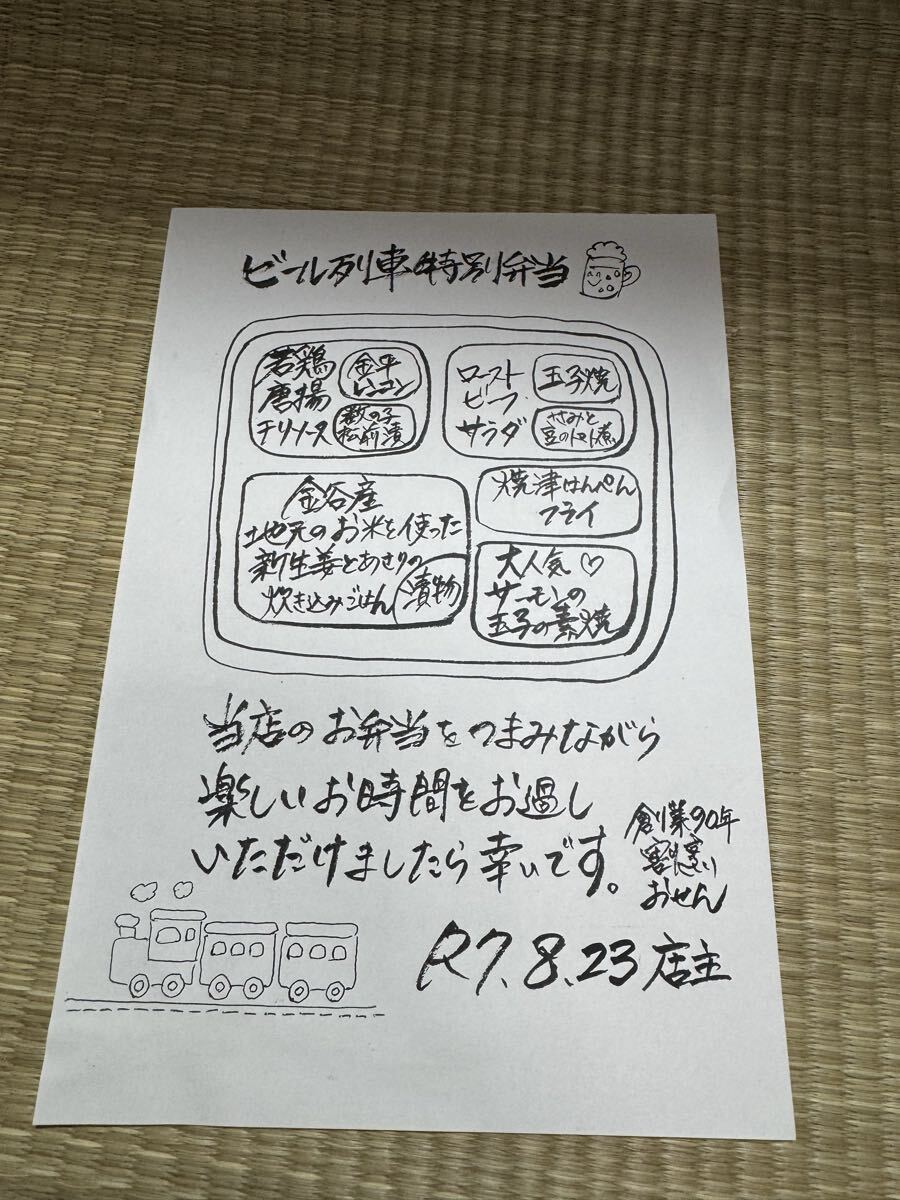 ビール列車特別弁当
若鶏
唐揚
チリソース
金平
レンコン
数の子
松前漬
ロースト
ビーフ
サラダ
玉子焼
豆のトマト煮
金谷産
地元のお米を使った
新生姜とあさりの
炊き込みごはん
漬物
焼津はんぺん
フライ
大人気♡
サーモンの
玉子の素焼
当店のお弁当をつまみながら
楽しいお時間をお過し
いただけましたら幸いです。
創業90年
おせん
R7.8.23 店主